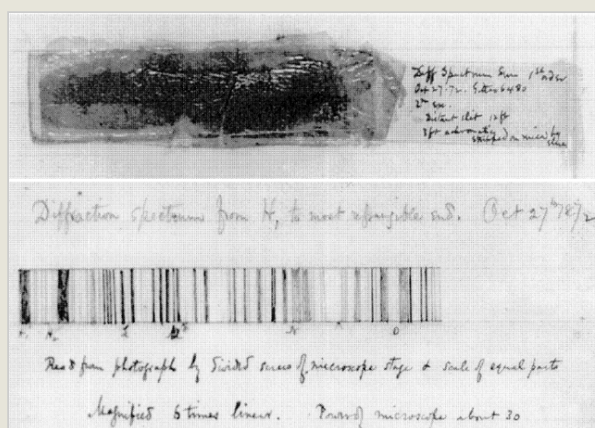 Diff Spectrum Sun 1st order
Oct 27. 72. 6480
Distant slit 12 ft
3 ft achromatic
Diffraction spectrum from H, to most refrangible end. Oct 27th 1872
H, H L M N O
Read from photograph by divided screw of microscope stage & scale of equal parts
Magnified 6 times linear. Power of microscope about 30